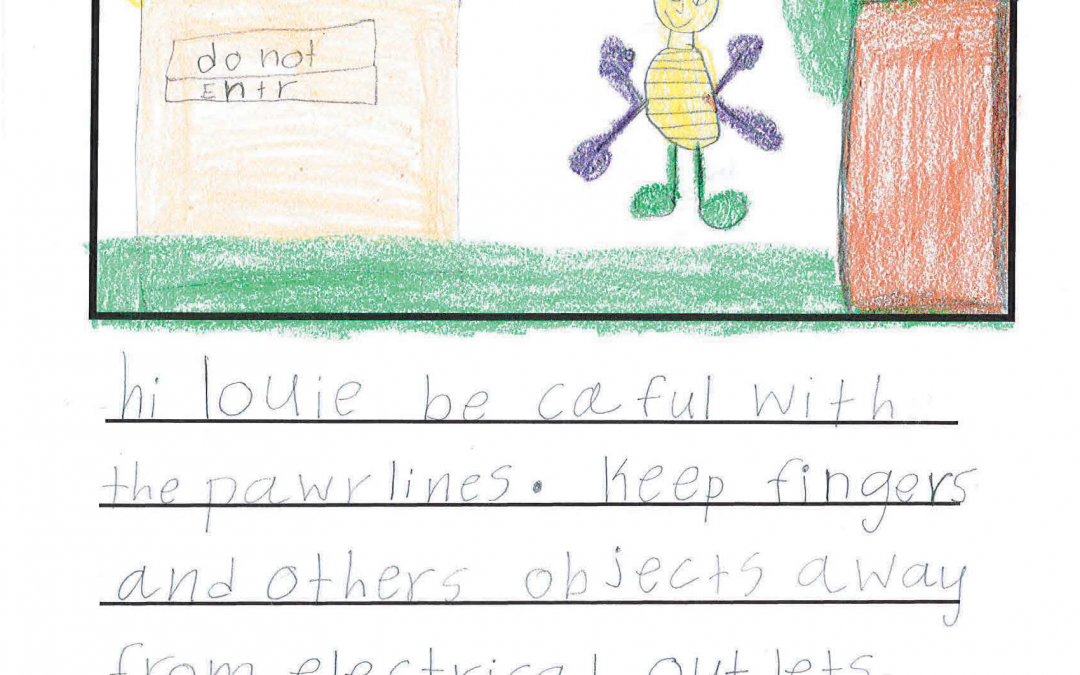 do not
Entr
hi louie be caful with
the pawr lines. Keep fingers
and others objects away
from electrical outlets.